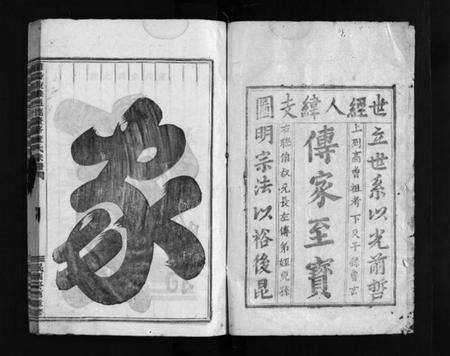 世經人緯支圖
立世系以光前哲
上列高曾祖考下及子孫曾玄
傳家至寶
右聯伯叔兄長左傳弟姪兒孫
明宗法以裕後昆